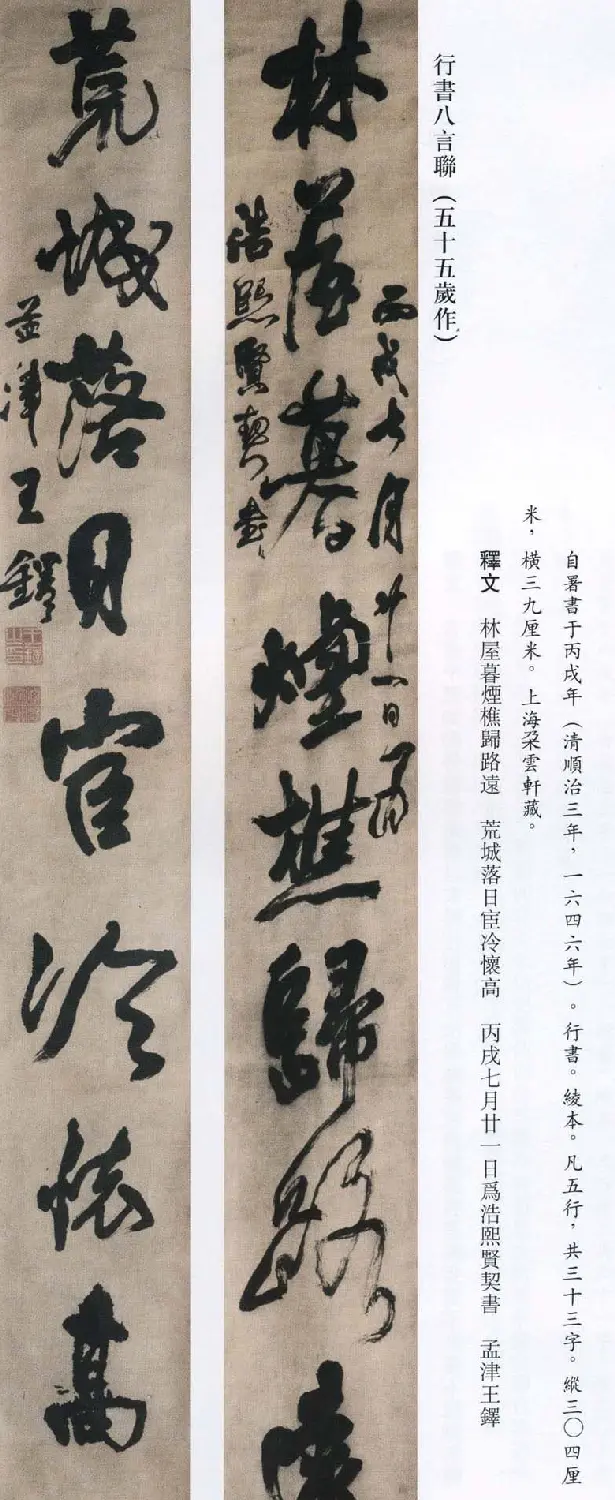 行書八言聯（五十五歲作）
自署書于丙戌年（清順治三年，一六四六年）。行書。綾本。凡五行，共三十三字。縱三〇四厘
米，橫三九厘米。上海朵雲軒藏。
釋文　林屋暮煙樵歸路遠　荒城落日宦冷懷高　丙戌七月廿一日爲浩熙賢契書　孟津王鐸
丙戌七月廿一日爲
林屋暮煙樵歸路
浩熙賢契書
荒城落日宦冷懷高
孟津王鐸